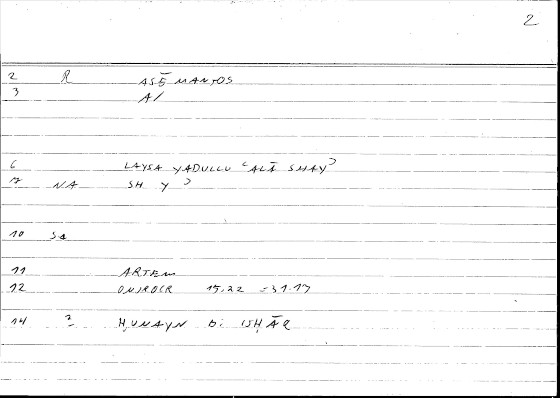 2
2 R ASĒ MANTOS
3 A/
6 LAYSA YADULLU ʿALĀ SHAYʾ
7 NA SH Y ʾ
10 Sa
11 ARTEM
12 ONIROCR 15.22 - 31.17
14 2 ḤUNAYN b. ISḤĀQ